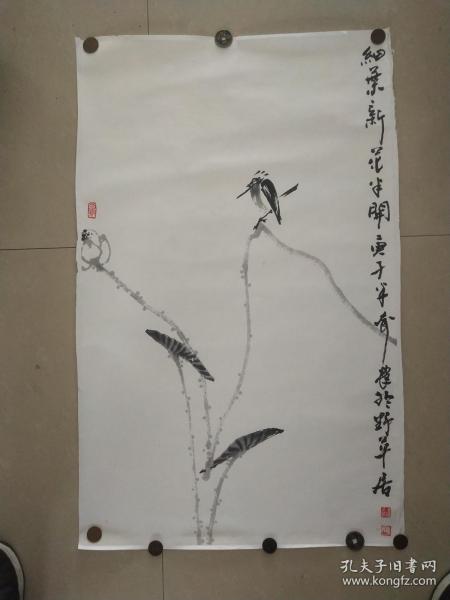 細葉新花半開庚子年春建於野草居
孔夫子旧书网
www.kongfz.com